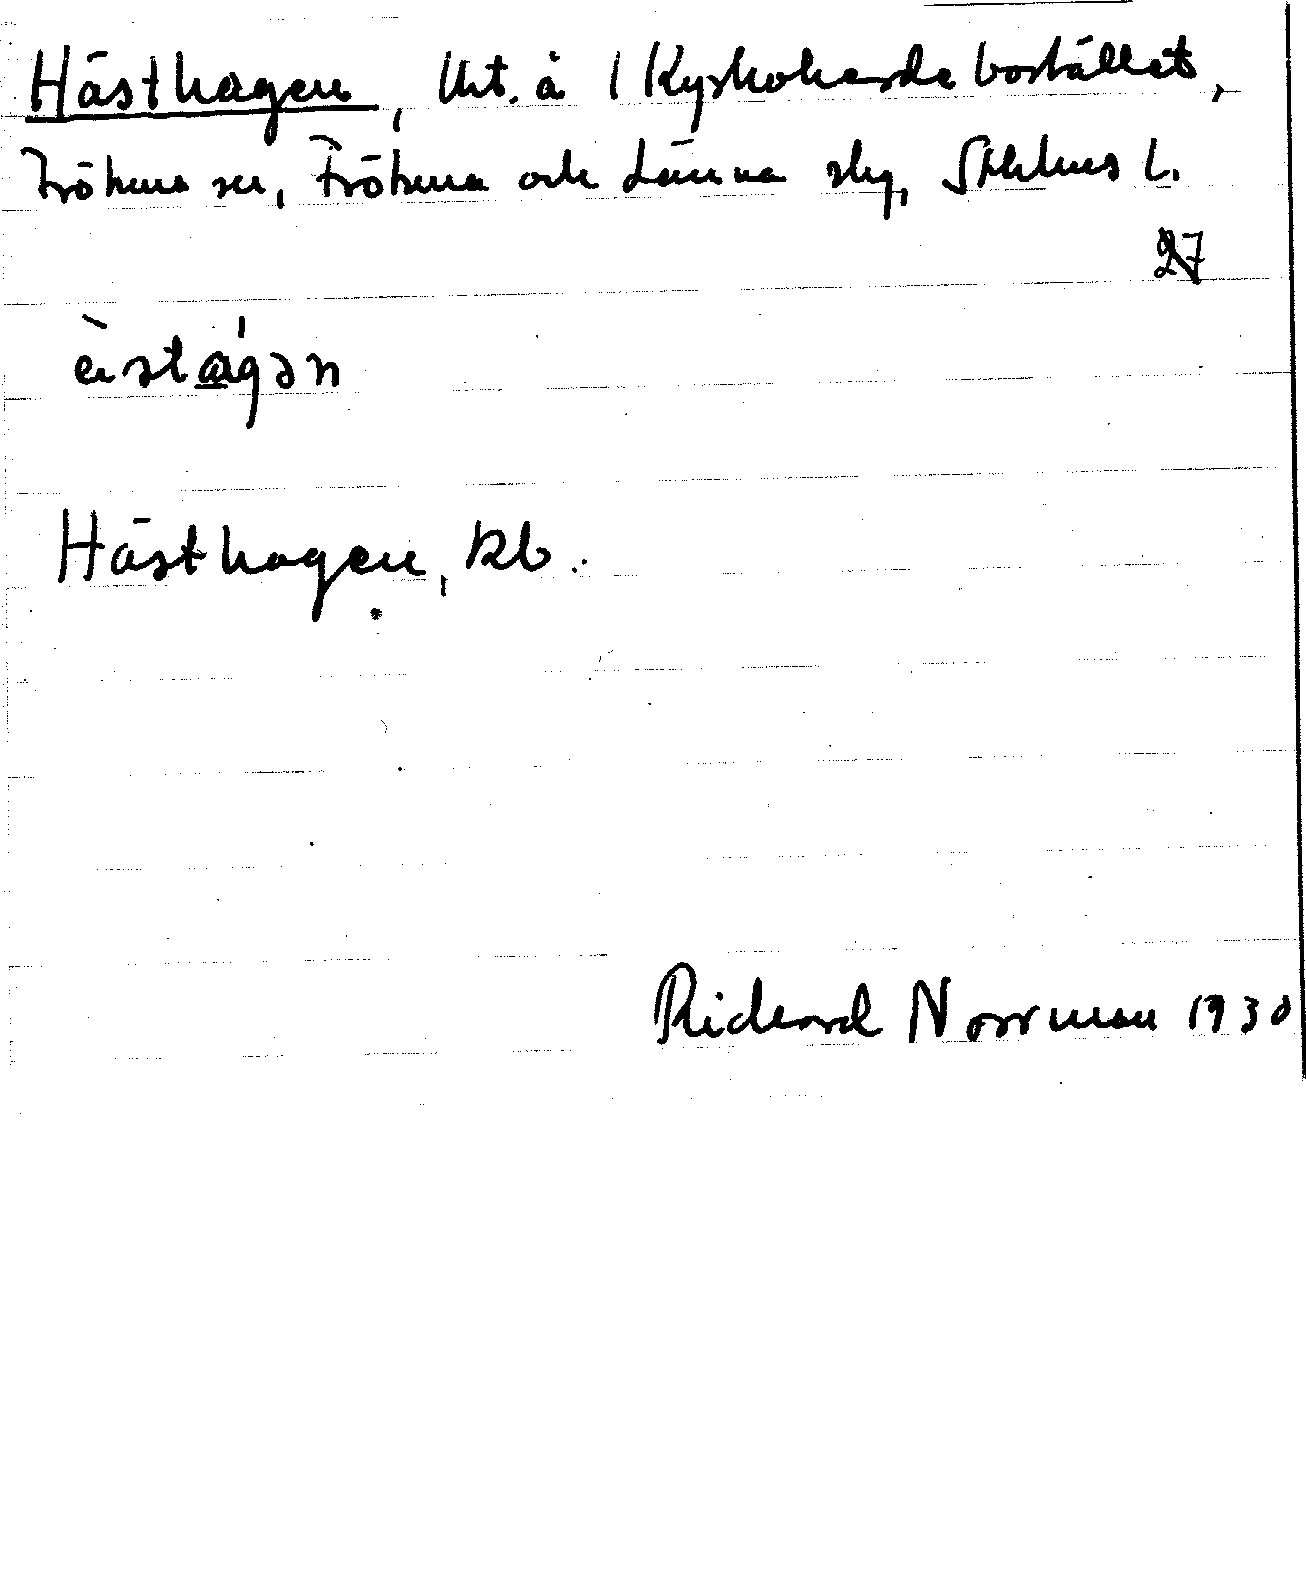 Hästhagen, Urt. å 1 Kyrkoherdebostället,
Frötuna sn, Frötuna och Länna skg, Sthlms L.
27
Hästhagen, kb.
Rickard Norrman 1930